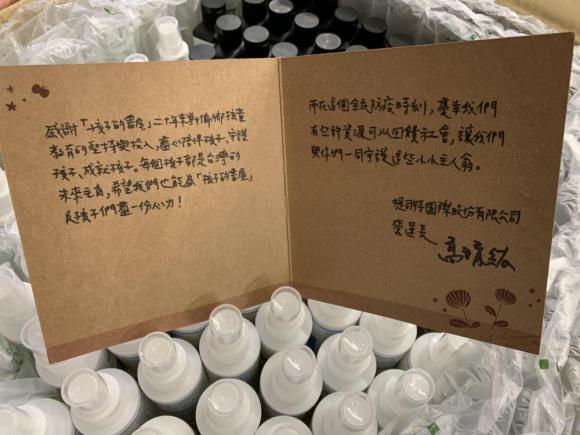 感謝「孩子的書屋」二十年來對偏鄉孩童
教育的堅持與投入，盡心陪伴孩子、守護
孩子、成就孩子。每個孩子都是台灣的
未來主角，希望我們也能為「孩子的書屋」
及孩子們盡一份心力！
而在這個全民防疫時刻，慶幸我們
有些許資源可以回饋社會，讓我們
與你們一同守護這些小小主人翁。
國際股份有限公司
營運長